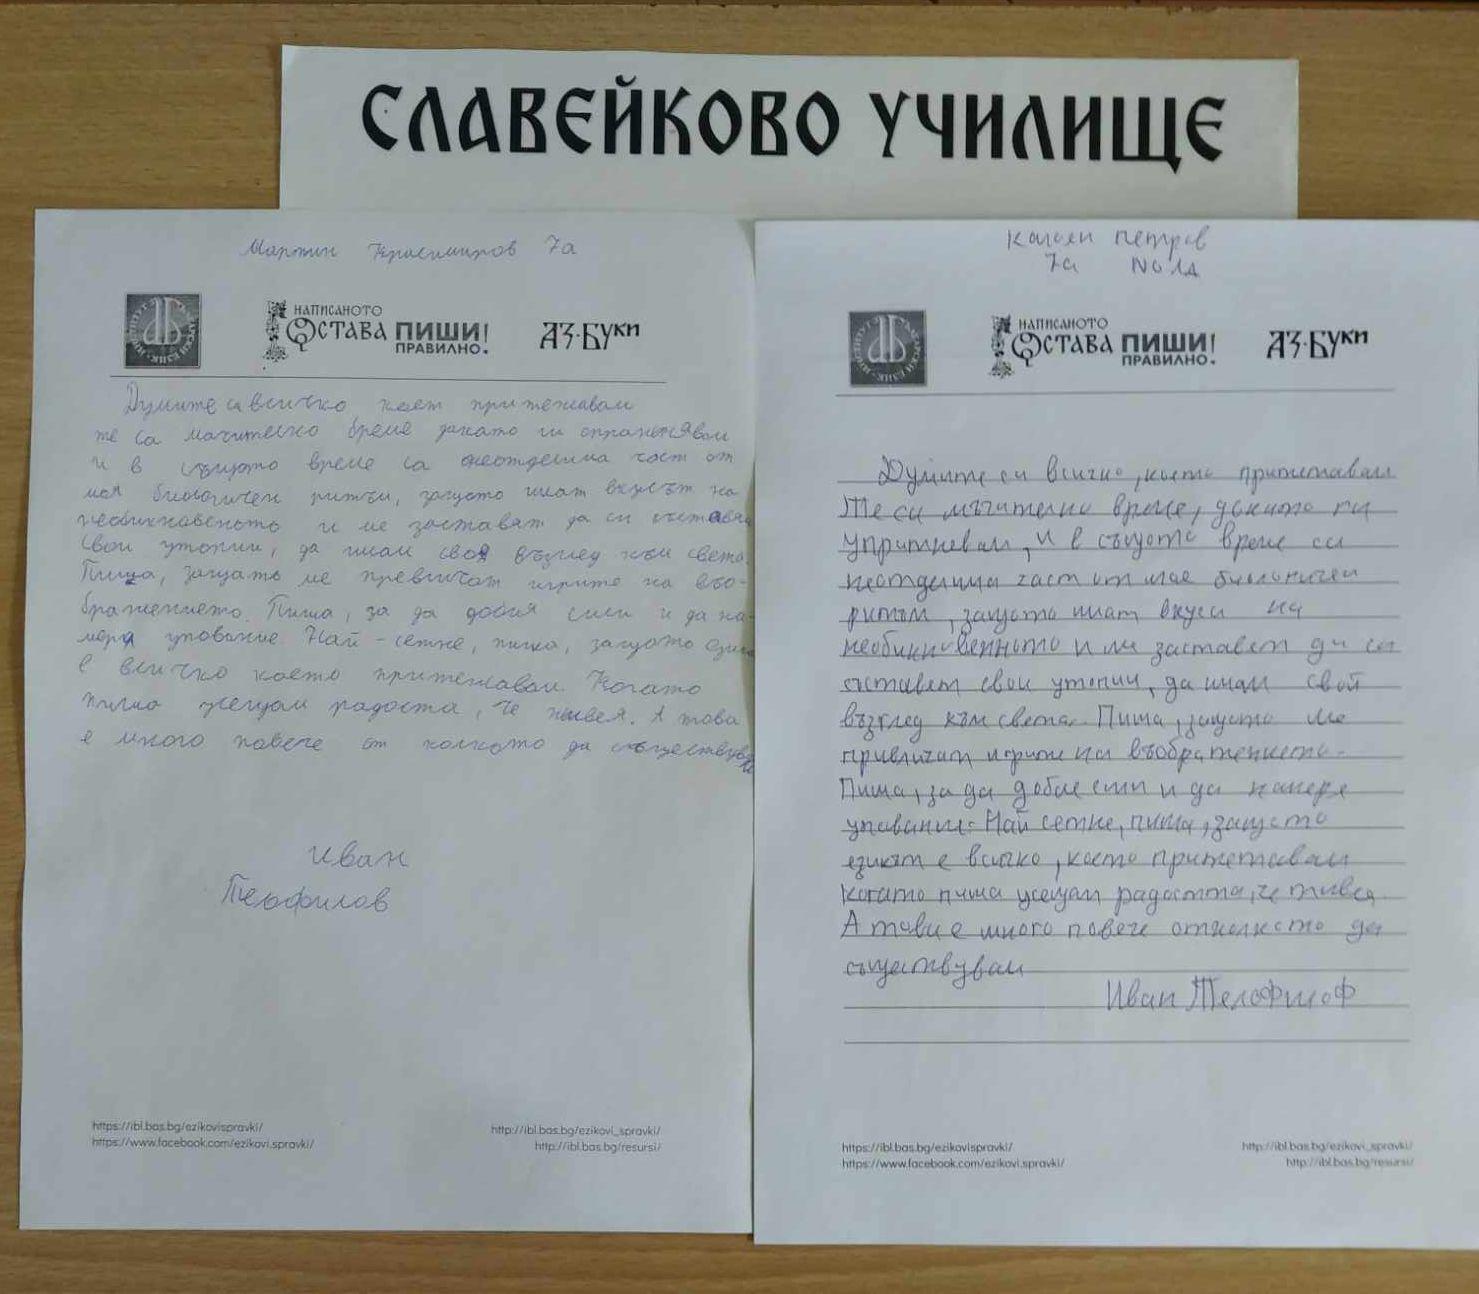 СЛАВЕЙКОВО УЧИЛИЩЕ
Мартин Красимиров 7а
НАПИСАНОТО
ОСТАВА ПИШИ!
ПРАВИЛНО.
АЗ·БУКИ
Думите са всичко коет притежавам
те са мъчително бреме докато ги
и в същото време са неотделима част от
моя биологичен ритъм, защото имат вкусът на
необикновеното и ме заставят да си съставя
свои утопии, да имам своя възглед към света.
Пиша, защото ме превличат игрите на въо-
бражението. Пиша, за да добия сили и да на-
меря упование. Най-сетне, пиша, защото език
е всичко което притежавам. Когато
пиша усещам радоста, че живея. А това
е много повече от колкото да съществувам
Иван
Теофилов
https://ibl.bas.bg/ezikovispravki/
https://www.facebook.com/ezikovi.spravki/
http://ibl.bas.bg/ezikovi_spravki/
http://ibl.bas.bg/resursi/
Калоян Петров
7а
НАПИСАНОТО
ОСТАВА ПИШИ!
ПРАВИЛНО.
АЗ·БУКИ
Думите са всичко, което притежавам
Те са мъчително време, докато ги
упритневам, и в същото време са
неотделима част от мое биологичен
ритъм, защото имат вкуса на
необикновенното и ме заставет да си
съставем свои утопии, да имам свой
възглед към света. Пиша, защото ме
привличат игрите на въображението.
Пиша, за да добие сили и да намере
упование. Най сетне, пиша, защото
езикът е всичко, което притежавам
когато пиша усещам радостта, че живея.
А това е много повече отколкото да
съществувам
Иван Телофилоф
https://ibl.bas.bg/ezikovispravki/
https://www.facebook.com/ezikovi.spravki/
http://ibl.bas.bg/ezikovi_spravki/
http://ibl.bas.bg/resursi/